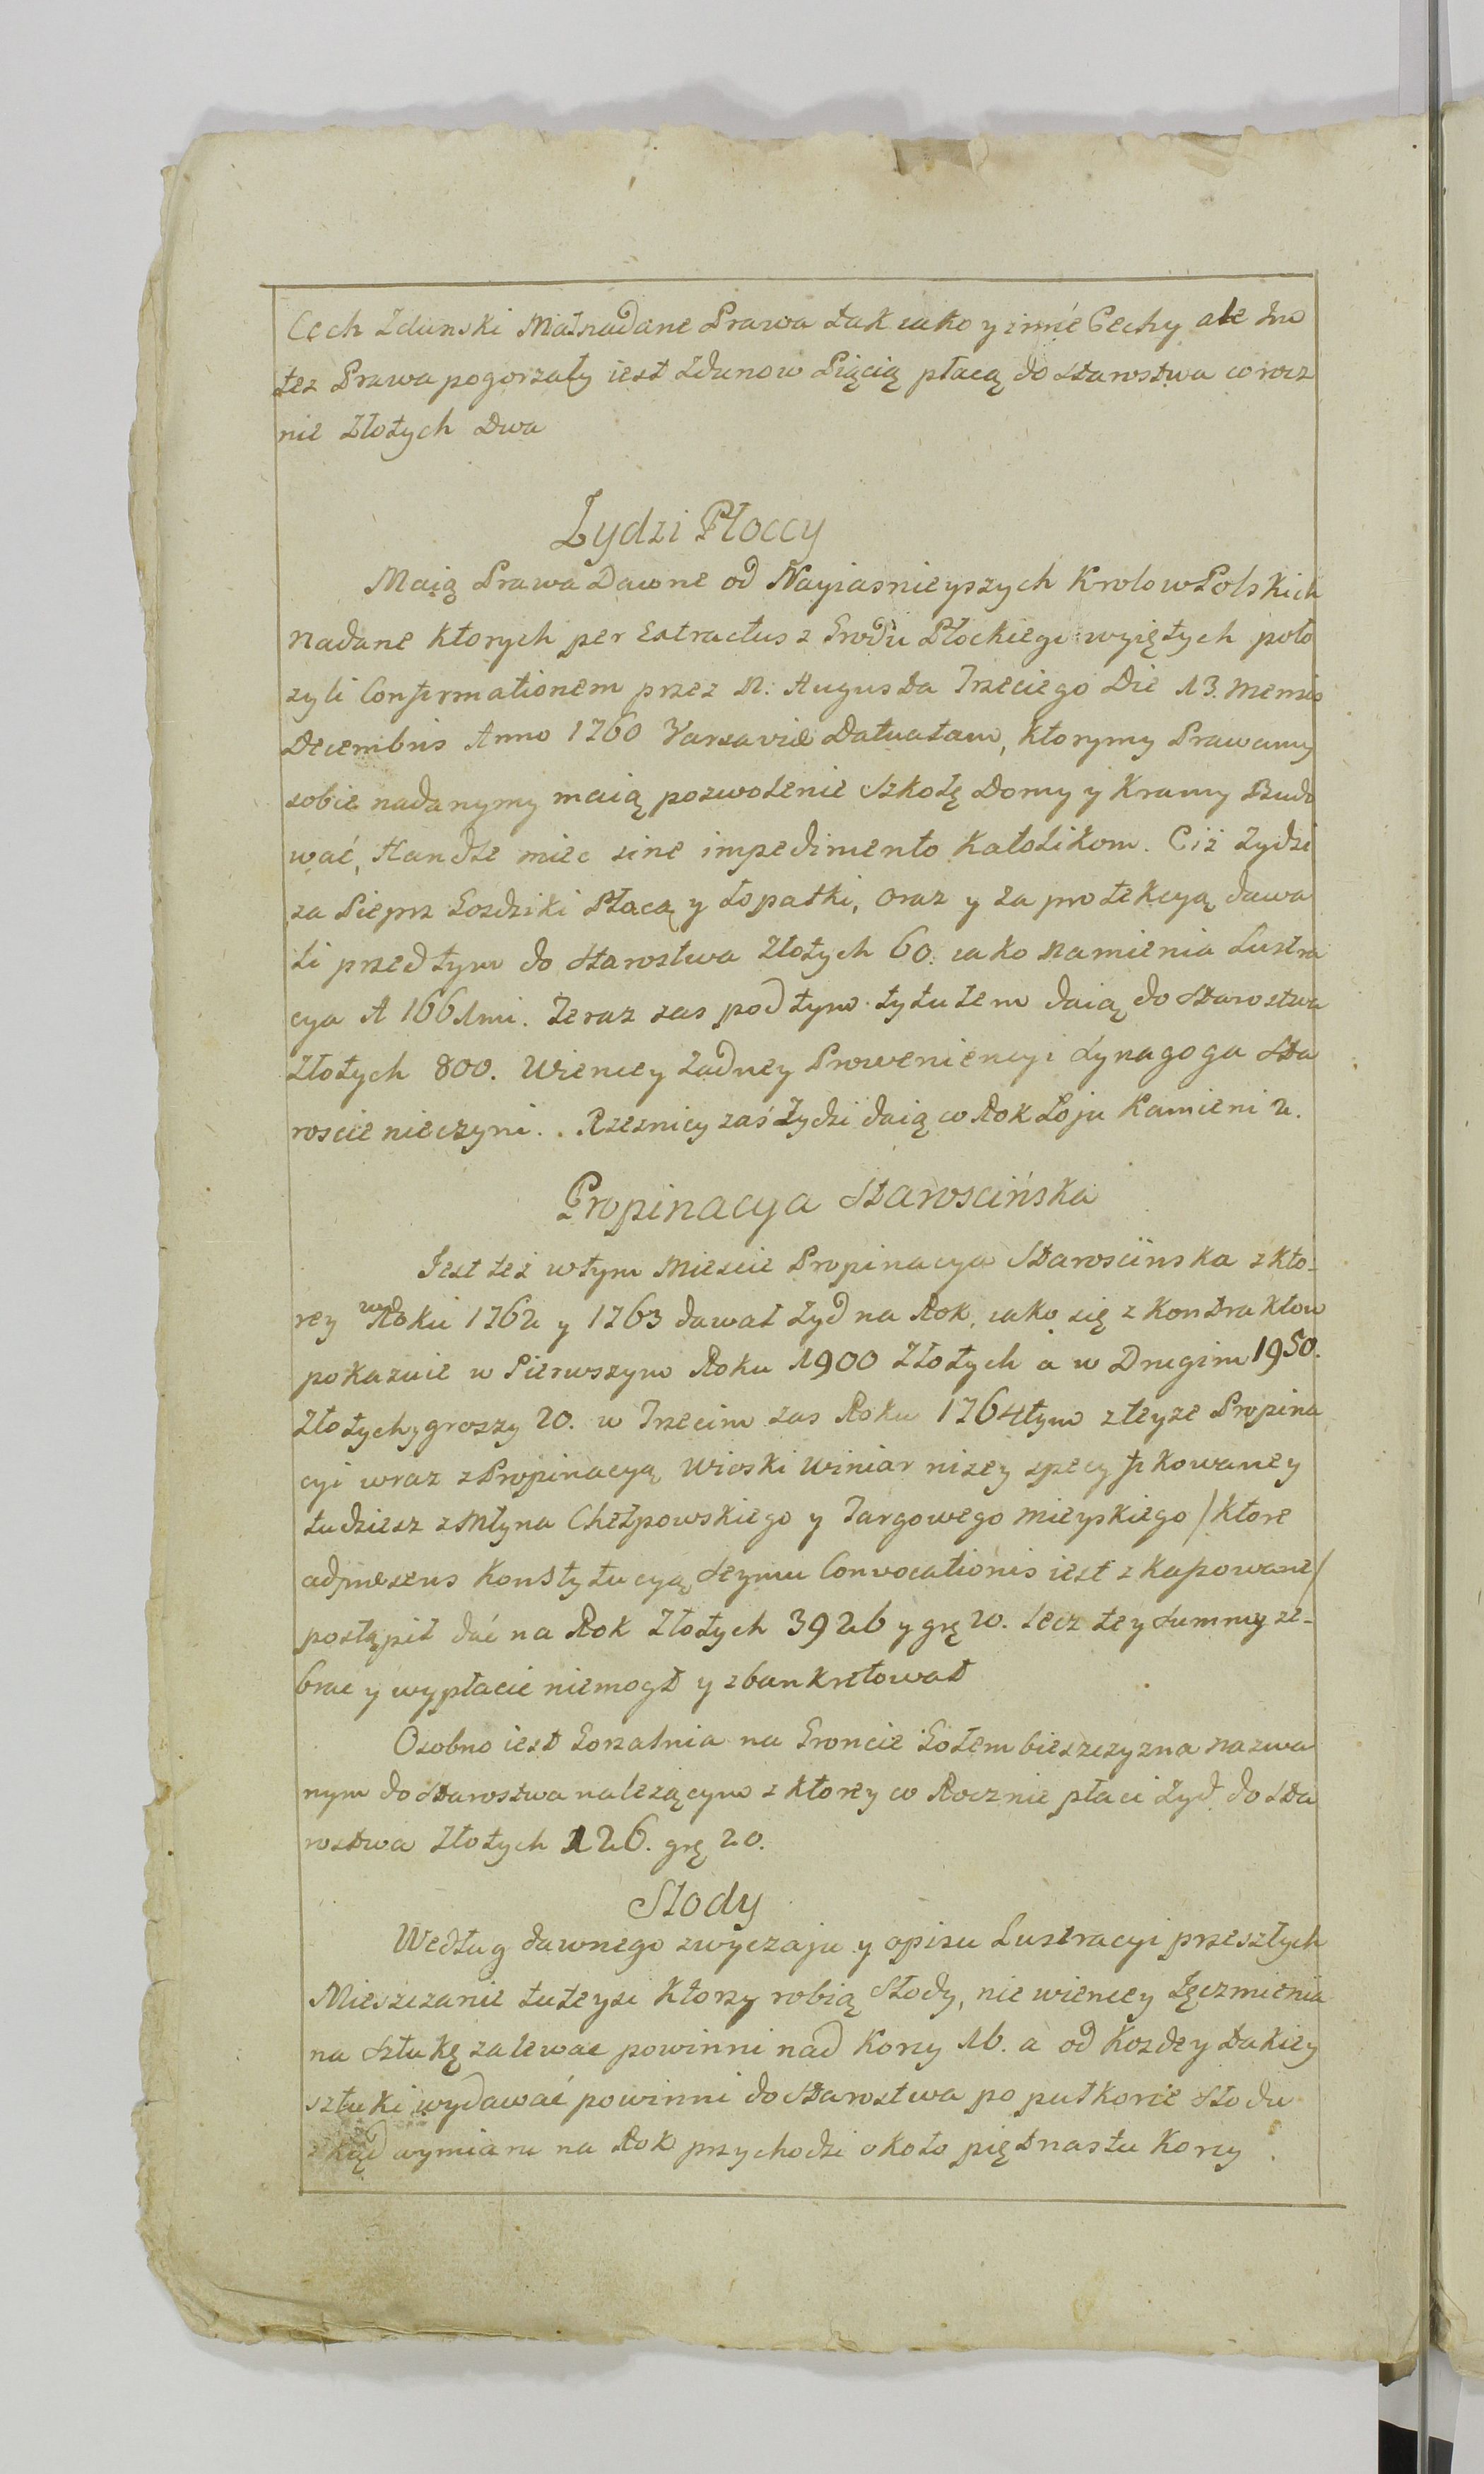 Cech Zdunski Miał nadane Prawa tak iako y inne Cechy ale mu
tez Prawa pogorzały iest Zdunow Piącią płacą do Starostwa corocz
nie Złotych Dwa
Zydzi Płoccy
Maią Prawa Dawne od Nayiasnieyszych Krolow Polskich
nadane ktorych per Extractus z Grodu Płockiego wyiętych poło
zyli Confirmationem przez N: Augusta Trzeciego Die 13. mensis
Decembris Anno 1760 Varsavie Datuatam, ktorymy Prawamy
sobie nadanymy maią pozwolenie Szkołę Domy y Kramy Budo
wać, Handle miec sine impedimento Katolikom. Ciż Zydzi
za Pieprz Gozdziki Płacą y Łopatki, oraz y za protekcyą dawa
li przed tym do Starostwa Złotych 60. iako namienia Lustra
cya A 1661mi. Teraz zas pod tym tytułem daią do Starostwa
Złotych 800. Wiencey zadney Proweniencyi Synagoga Sta
roscie nieczyni. . Rzeznicy zaś Zydzi daią co Rok Łoju Kamieni 2.
Propinacya Starościńska
Jest też w tym Miescie Propinacya Starościnska z kto-
rey w Roku 1762 y 1763 dawał Zyd na Rok, iako się z kontraktow
pokazuie w Pierwszym Roku 1900 Złotych a w Drugim 1950.
Złotych y groszy 20. w Trzecim zas Roku 1764tym z teyze Propina
cyi wraz z Propinacyą Wioski Winiar nizey specyfikowaney
tudziesz z Młyna Chełpowskiego y Targowego mieyskiego / ktore
ad praesens Konstytucyą Seymu Convocationis iest skassowane /
postąpił dać na Rok Złotych 3926 y grę 20. lecz tey Summy ze-
brac y wypłacic niemogł y zbankretował
Osobno iest Gorzalnia na Groncie Gołembieszczyzna nazwa
nym do Starostwa nalezącym z ktorey co Rocznie płaci Zyd do Sta
rostwa Złotych 126. grę 20.
Słody
Według dawnego zwyczaju y opisu Lustracyi przeszłych
Mieszczanie tuteysi ktorzy robią Słody, nie wiencey Jęczmienia
na Sztukę zalewac powinni nad Korcy 16. a od Kozdey takiey
sztuki wydawać powinni do Starostwa po pułkorcie Słodu
skąd wymiaru na Rok przychodzi około piętnastu Korcy